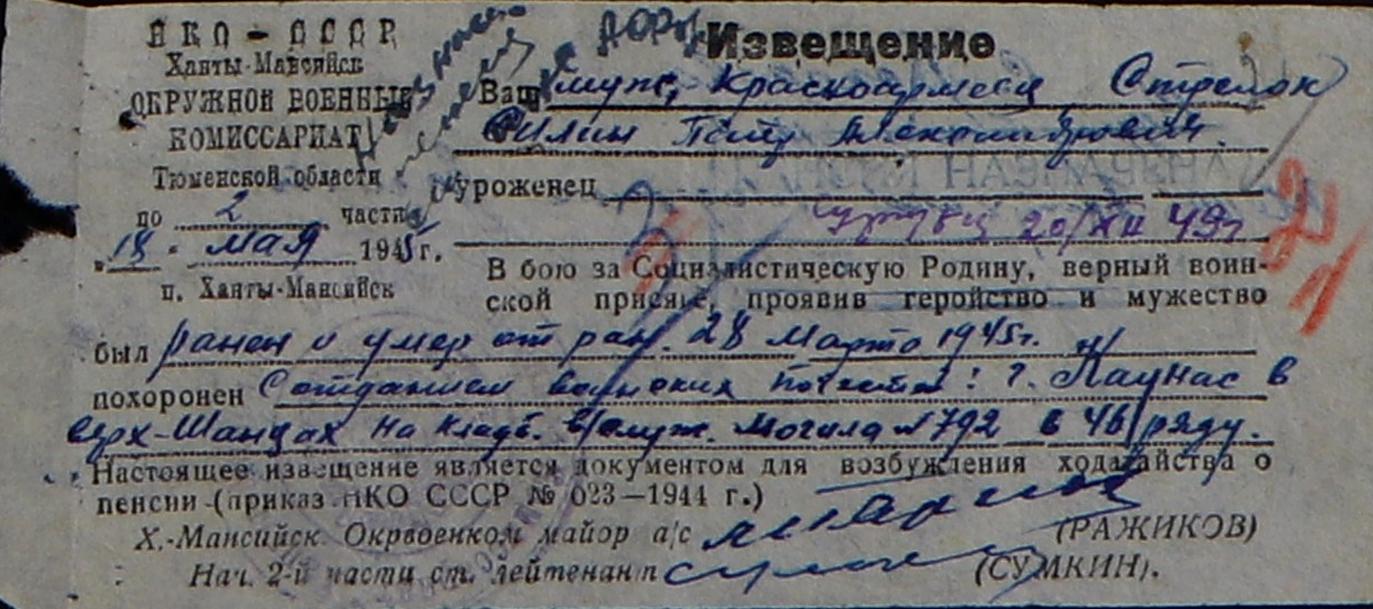 НКО - СССР
Ханты-Мансийск
ОКРУЖНОЙ ВОЕННЫЙ
КОМИССАРИАТ
Тюменской области
по 2 части
"18" мая 1945 г.
п. Ханты-Мансийск
Извещение
Ваш муж, Красноармеец Стрелок
Силин Петр Александрович.
уроженец
20/XII 49г
В бою за Социалистическую Родину, верный воин-
ской присяге, проявив геройство и мужество
был ранен и умер от ран. 28 Марта 1945г.
похоронен С отданием воинских почестей: г. Каунас в
на кладб. Могила №792 в 46 ряду.
Настоящее извещение является документом для возбуждения ходатайства о
пенсии (приказ НКО СССР № 023—1944 г.)
Х.-Мансийск. Окрвоенком майор а/с (РАЖИКОВ)
Нач. 2-й части ст. лейтенант (СУМКИН).